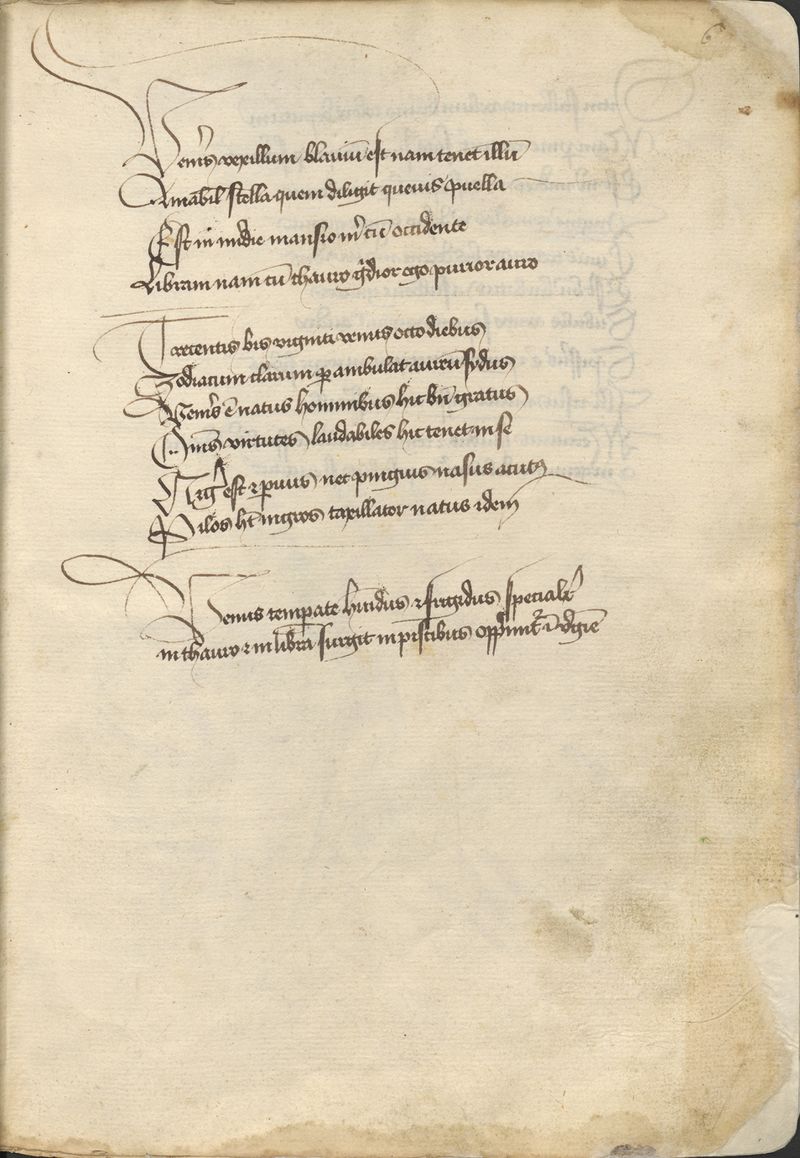 6
Venis vexillum blauiū est nam tenet illū
Amabil stella quem diligit queuis puella
Est in midie mansio m̄ cū occidente
Libram nam cū thauro gͣdior ego purior auro
Trecentis bis viginti venus octo diebus
Zodiacum clarum ꝑambulat aureū sydus
Venis ē natus hominibus hic bn̄ gratus
Oīns virtutes laudabiles hic tenet in se
est ⁊ ꝑuus nec pinguis nasus acutꝰ
Pilos hꝫ nigros taxillator natus idem
Venus temꝑate hūidus ⁊ frigidus specialit̄
in thauro ⁊ in libra surgit in piscibus ī v̓gīe